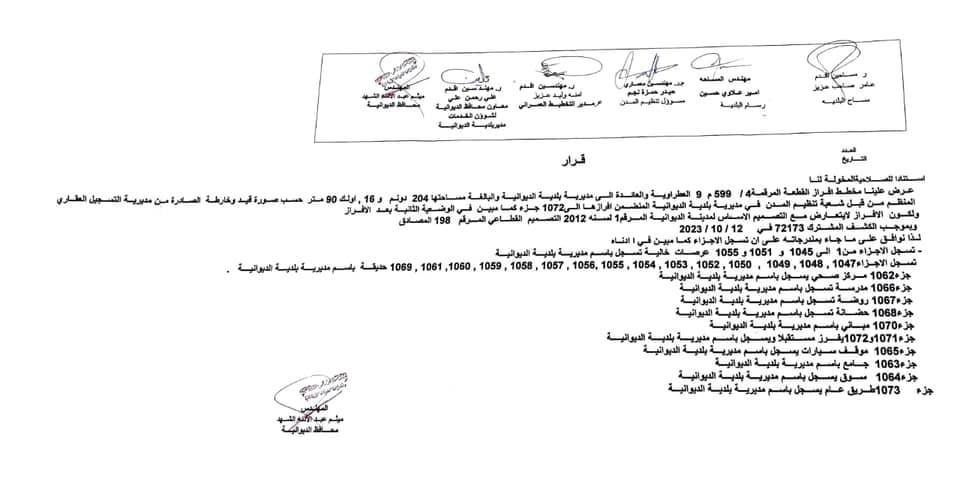 ر مساحين اقدم
عامر صاحب عزيز
مساح البلديه
مهندس المساحه
امير علاوي حسين
رسام البلدية
ور. مهندسين معماري
حيدر حمزة نجم
مسؤول تنظيم المدن
ر. مهندسين اقدم
امنه وليد عزيز
مدير التخطيط العمراني
ر. مهندسين اقدم
علي رحمن علي
معاون محافظ الديوانية
لشؤون الخدمات
مدير بلدية الديوانية
المهندس
ميثم عبد الاله الشهيد
محافظ الديوانية
العدد
التاريخ
قرار
استنادا للصلاحية المخولة لنا
عرض علينا مخطط افراز القطعة المرقمة 4 / 599 م 9 العطراوية والعائدة الى مديرية بلدية الديوانية والبالغة مساحتها 204 دونم و 16 , اولك 90 متر حسب صورة قيد وخارطة الصادرة من مديرية التسجيل العقاري
المنظم من قبل شعبة تنظيم المدن في مديرية بلدية الديوانية المتضمن افرازها الى 1072 جزء كما مبين في الوضعية الثانية بعد الافراز
ولكون الافراز لايتعارض مع التصميم الاساس لمدينة الديوانية المرقم 1 لسنه 2012 التصميم القطاعي المرقم 198 المصادق
وبموجب الكشف المشترك 72173 في 12 / 10 / 2023
لذا نوافق على ما جاء بمندرجاته على ان تسجل الاجزاء كما مبين في ا ادناه
- تسجل الاجزاء من 1 الى 1045 و 1051 و 1055 عرصات خالية تسجل باسم مديرية بلدية الديوانية
تسجل الاجزاء 1047 , 1048 , 1049 , 1050 , 1052 , 1053 , 1054 , 1055 , 1056, 1057 , 1058 , 1059 , 1060, 1061, 1069 حديقة باسم مديرية بلدية الديوانية .
جزء 1062 مركز صحي يسجل باسم مديرية بلدية الديوانية
جزء 1066 مدرسة تسجل باسم مديرية بلدية الديوانية
جزء 1067 روضة تسجل باسم مديرية بلدية الديوانية
جزء 1068 حضانة تسجل باسم مديرية بلدية الديوانية
جزء 1070 مباني باسم مديرية بلدية الديوانية
جزء 1071 و1072 يفرز مستقبلا ويسجل باسم مديرية بلدية الديوانية
جزء 1065 موقف سيارات يسجل باسم مديرية بلدية الديوانية
جزء 1063 جامع باسم مديرية بلدية الديوانية
جزء 1064 سوق يسجل باسم مديرية بلدية الديوانية
جزء 1073 طريق عام يسجل باسم مديرية بلدية الديوانية
المهندس
ميثم عبد الاله الشهيد
محافظ الديوانية